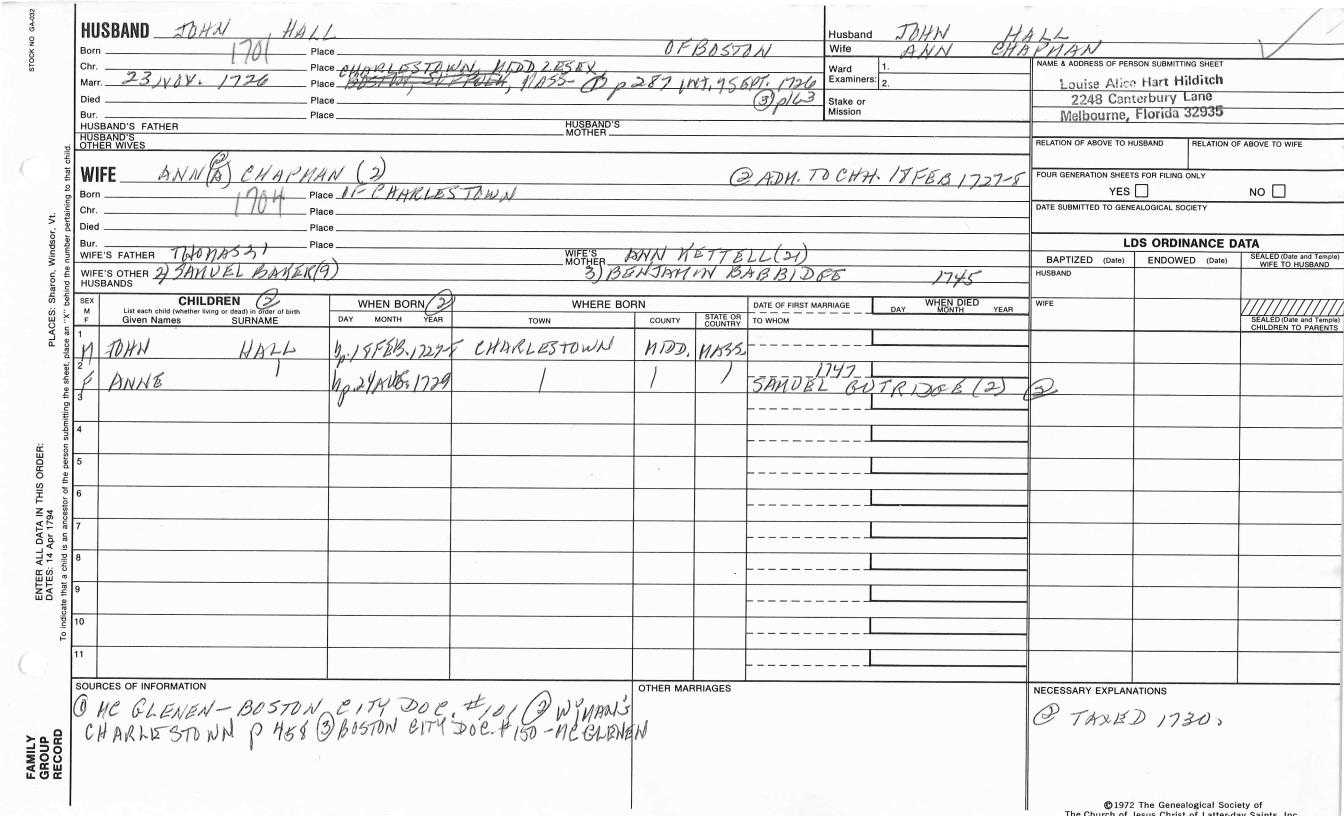 STOCK NO GA-032
HUSBAND JOHN HALL
Born 1701 Place OF BOSTON
Chr. Place CHARLESTOWN, MIDDLESEX
Marr. 23 NOV. 1726 Place BOSTON, SUFFOLK, MASS- ① p 287 INT. 9 SEPT. 1726
Died Place ③ p163
Bur. Place
HUSBAND'S FATHER HUSBAND'S MOTHER
HUSBAND'S OTHER WIVES
Husband JOHN HALL
Wife ANN CHAPMAN
Ward Examiners: 1.
2.
Stake or Mission
NAME & ADDRESS OF PERSON SUBMITTING SHEET
Louise Alice Hart Hilditch
2248 Canterbury Lane
Melbourne, Florida 32935
RELATION OF ABOVE TO HUSBAND RELATION OF ABOVE TO WIFE
FOUR GENERATION SHEETS FOR FILING ONLY
YES NO
DATE SUBMITTED TO GENEALOGICAL SOCIETY
WIFE ANN CHAPMAN (2) ② ADM. TO CHH. 18 FEB 1727-8
Born 1704 Place OF CHARLESTOWN
Chr. Place
Died Place
Bur. Place
WIFE'S FATHER THOMAS WIFE'S MOTHER ANN KETTELL (21)
WIFE'S OTHER HUSBANDS 2) SAMUEL BAKER (9) 3) BENJAMIN BABBIDGE 1745
LDS ORDINANCE DATA
BAPTIZED (Date) ENDOWED (Date) SEALED (Date and Temple) WIFE TO HUSBAND
HUSBAND
WIFE
SEALED (Date and Temple) CHILDREN TO PARENTS
SEX M F
CHILDREN ②
List each child (whether living or dead) in order of birth
Given Names SURNAME
WHEN BORN ②
DAY MONTH YEAR
WHERE BORN
TOWN COUNTY STATE OR COUNTRY
DATE OF FIRST MARRIAGE
TO WHOM
WHEN DIED
DAY MONTH YEAR
1 M JOHN HALL bp. 18 FEB. 1727-8 CHARLESTOWN MIDD. MASS.
2 F ANNE bp. 24 AUG. 1729 1747
SAMUEL GUTRIDGE (2) ②
3
4
5
6
7
8
9
10
11
SOURCES OF INFORMATION
① MC GLENEN - BOSTON CITY DOC. #101 ② WYMAN'S
CHARLESTOWN p 458 ③ BOSTON CITY DOC. #150 - MCGLENEN
OTHER MARRIAGES
NECESSARY EXPLANATIONS
② TAXED 1730.
©1972 The Genealogical Society of
The Church of Jesus Christ of Latter-day Saints, Inc.
PLACES: Sharon, Windsor, Vt.
ENTER ALL DATA IN THIS ORDER:
DATES: 14 Apr 1794
To indicate that a child is an ancestor of the person submitting the sheet, place an "X" behind the number pertaining to that child.
FAMILY
GROUP
RECORD